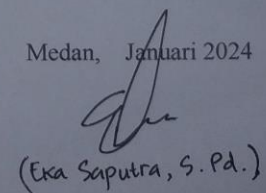 Medan, Januari 2024
(Eka Saputra, S.Pd.)